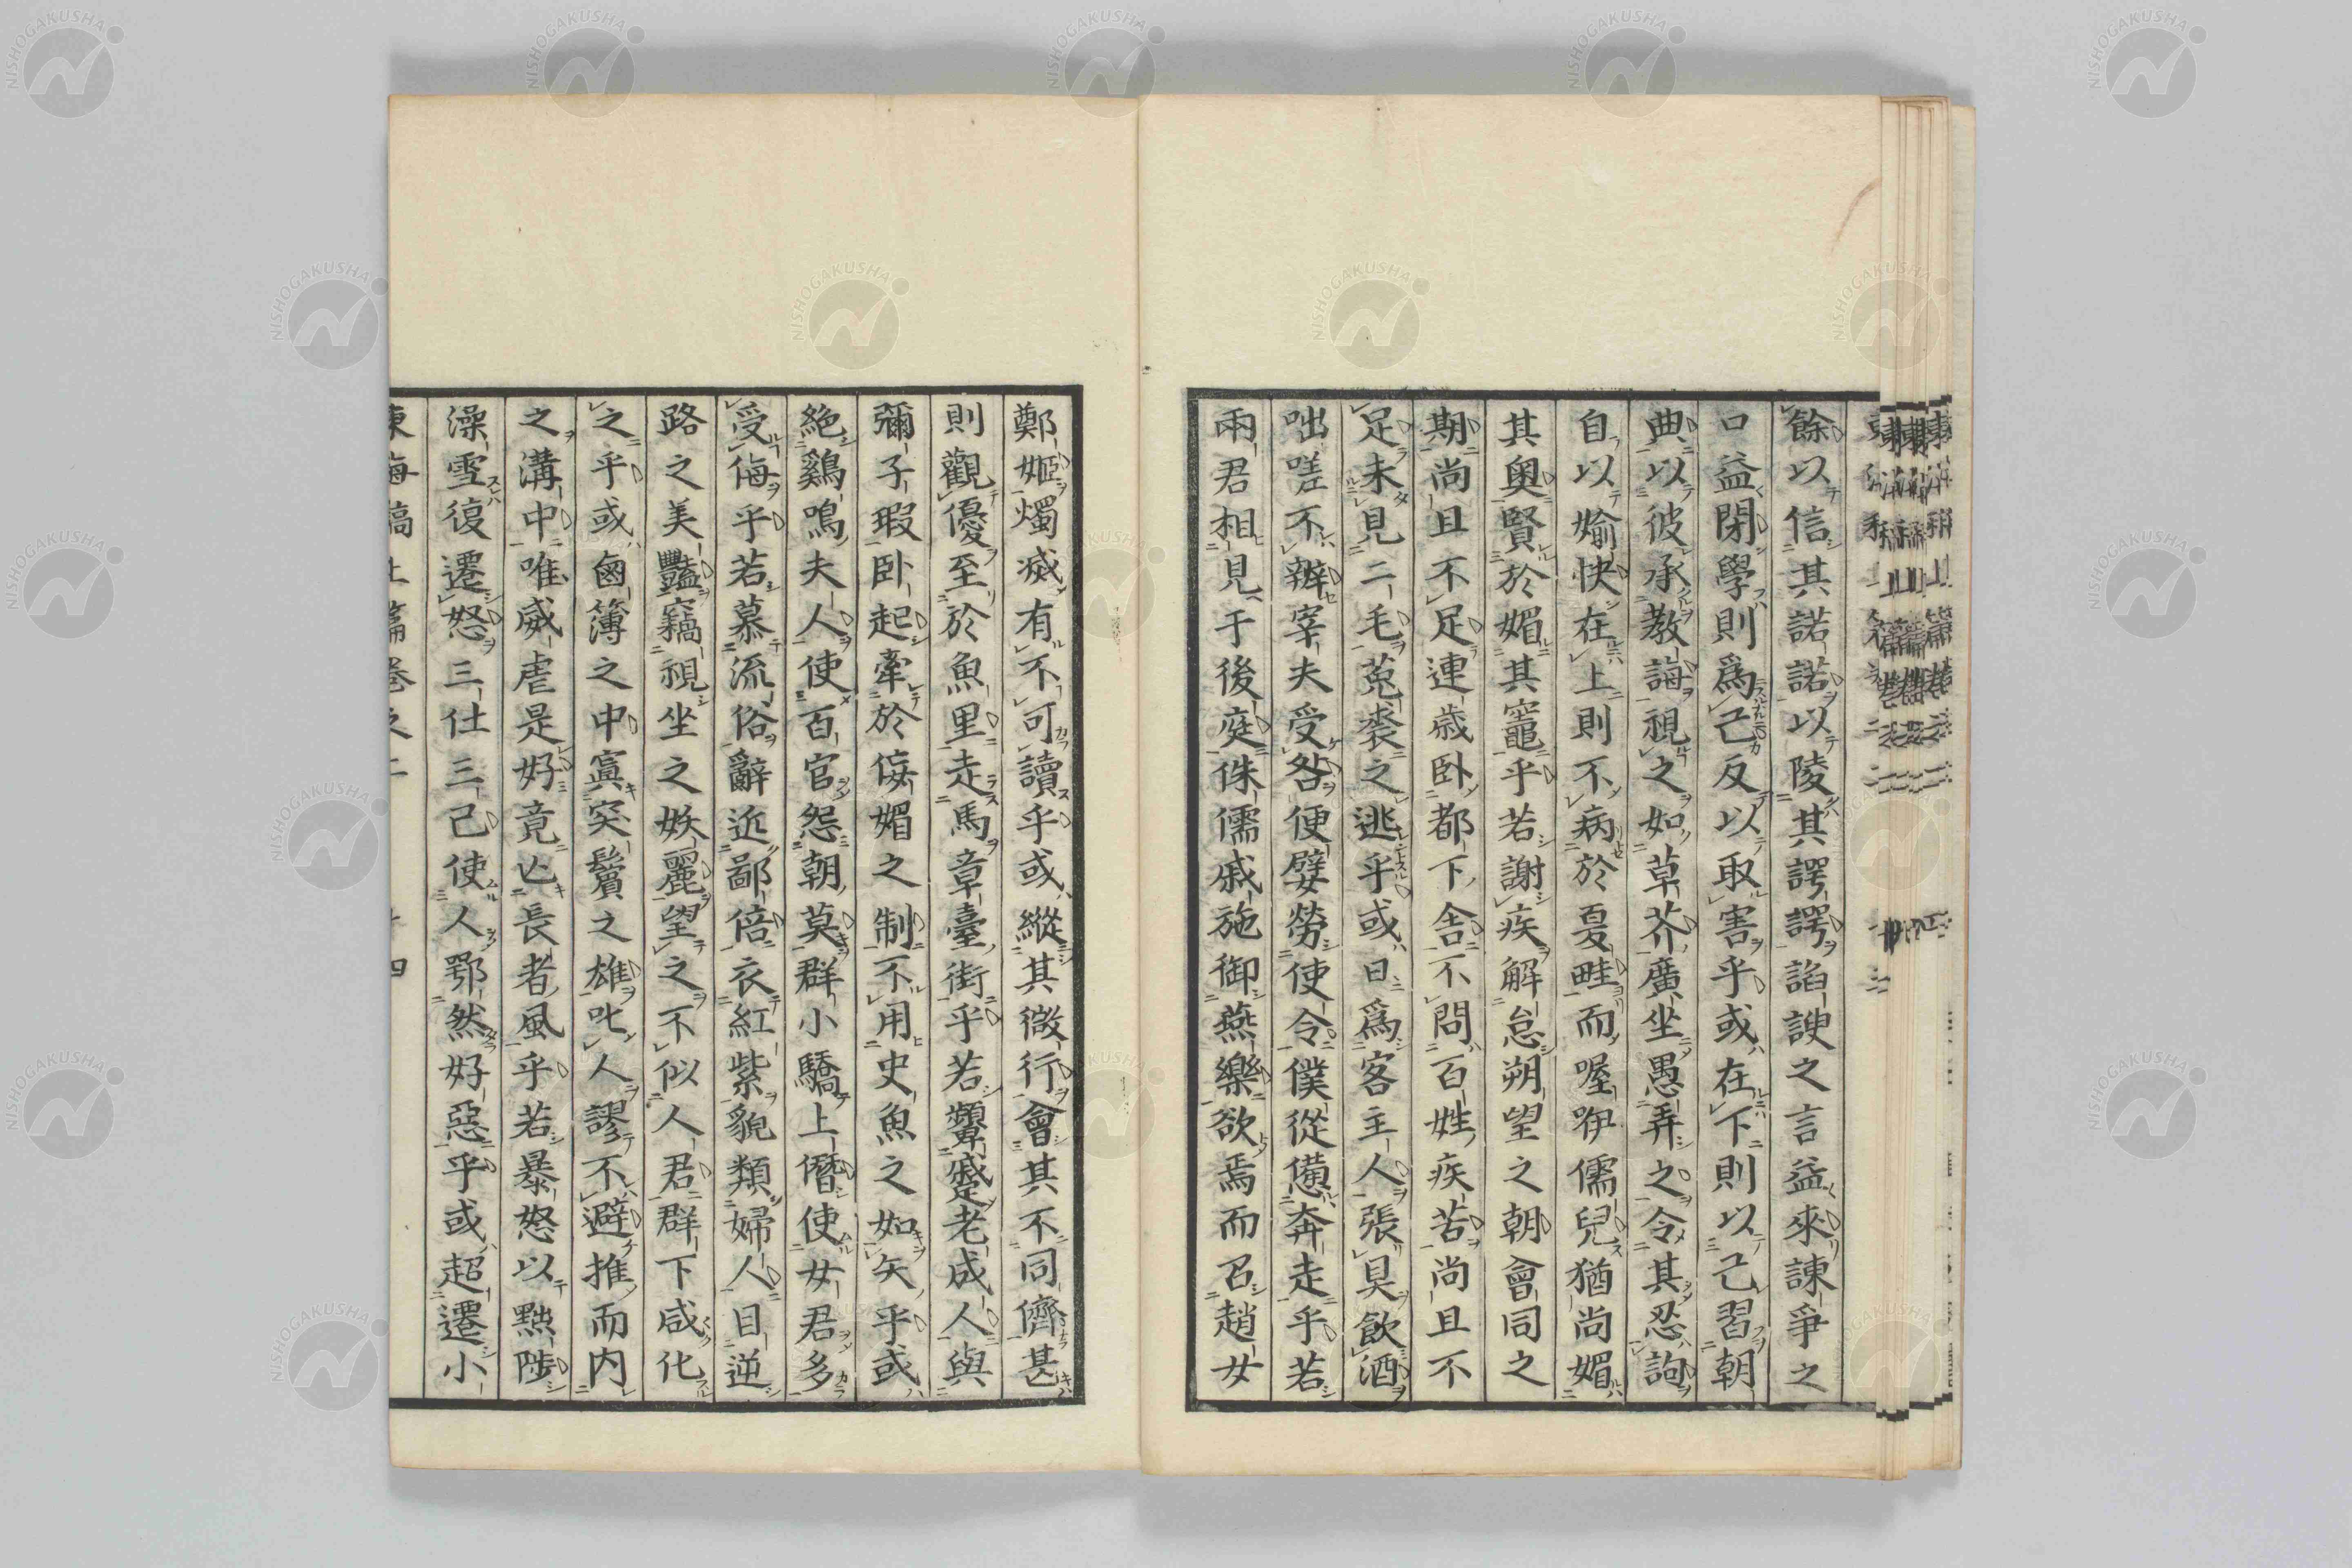 餘以信其諾諾以陵其諤諤諂諛之言益來諫爭之
口益閉學則爲己反以取害乎或在下則以己習朝
典以彼承教誨視之如草芥廣坐愚弄之令其忍詢
自以婾快在上則不病於夏畦而喔咿儒兒猶尚媚
其奧賢於媚其竈乎若謝疾解怠朔望之朝會同之
期尚且不足連歳卧都下舍不問百姓疾苦尚且不
足未見二毛菟裘之逃乎或日爲客主人張具飲酒
咄嗟不辦宰夫受咎便嬖勞使令僕從憊奔走乎若
兩君相見于後庭侏儒戚施御燕樂欲焉而召趙女
鄭姬燭烕有不可讀乎或縱其微行會其不同儕甚
則觀優至於魚里走馬章臺街乎若顰蹙老成人與
彌子瑕卧起牽於侫媚之制不用史魚之如矢乎或
絶鷄鳴夫人使百官怨朝莫群小驕上僭使女君多
受侮乎若慕流俗辭近鄙倍衣紅紫貌類婦人目逆
路之美豔竊視坐之妖麗望之不似人君群下咸化
之乎或鹵簿之中寘突鬢之雄叱人謬不避推而内
之溝中唯威虐是好竟亡長者風乎若暴怒以黜陟
澡雪復遷怒三仕三已使人鄂然好惡乎或超遷小
東海稿上篇卷之二 十四